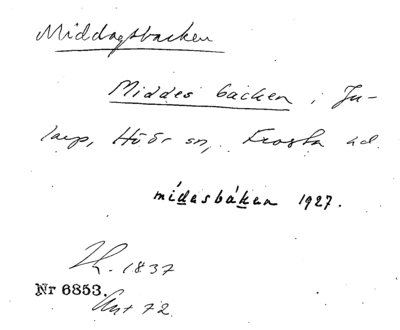 Middagsbacken
Middes backen i Ju-
larp, Höör sn, Frosta hd.
mídasbákan 1927.
1837
Nr 6853.
Ant 72.